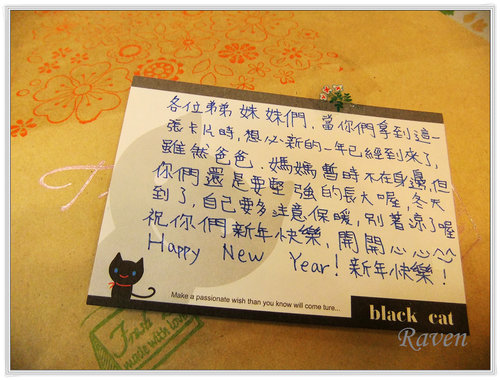 各位弟弟妹妹們，當你們拿到這一
張卡片時，想必新的一年已經到來了，
雖然爸爸、媽媽暫時不在身邊，但
你們還是要堅強的長大喔，冬天
到了，自己要多注意保暖，別著涼了喔
祝你們新年快樂，開開心心^^
Happy New Year! 新年快樂！
Make a passionate wish than you know will come ture...
black cat
made with love
Raven